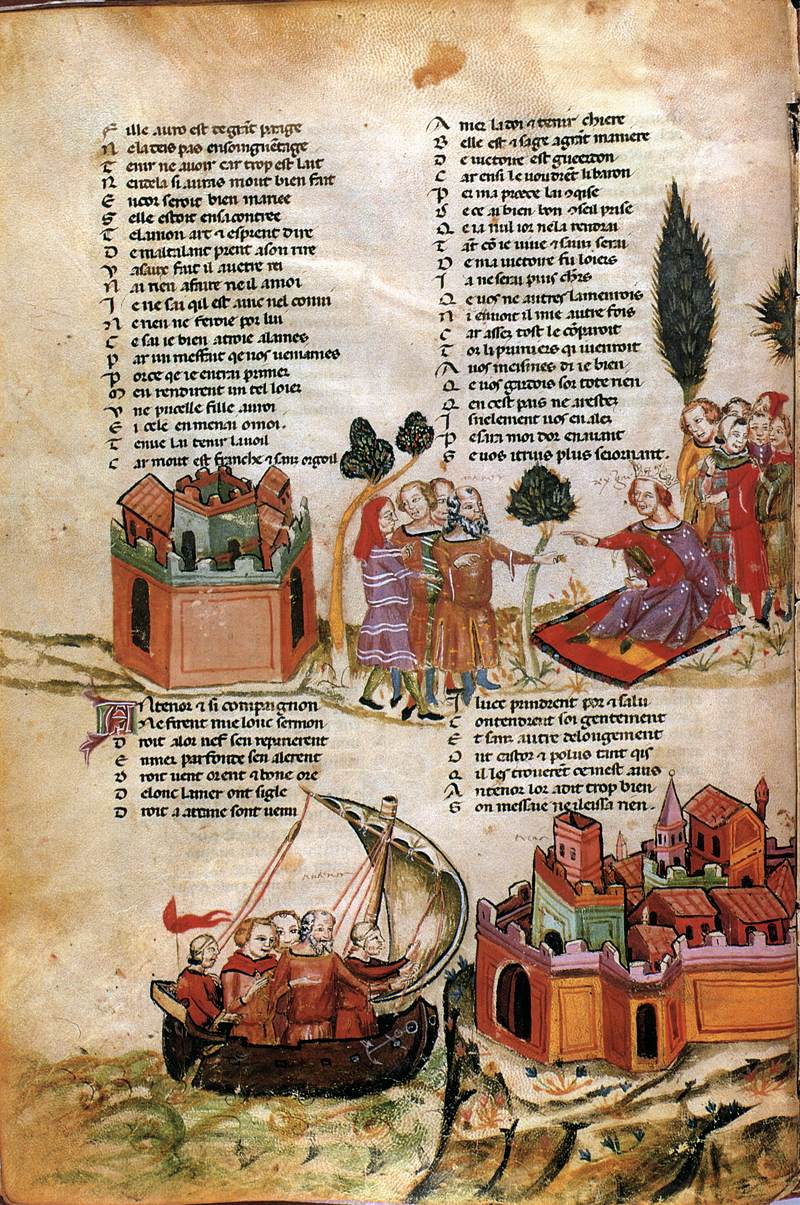 F ille auro est de grāt parage
N e la teis pas en soingnētage
T enir ne auoir car trop est lait
N en cela si auras mout bien fait
E ncor seroit bien mariee
S elle estoit en sa contree
T elamon art & esprent dire
D e maltalant prent a son rire
V asaux fait il a uetre rei
N ai rien a faire ne il a moi
I e ne sai qil est ainc nel conui
N e rien ne feroie por lui
C e sai ie bien a troie alames
P ar un meffait qe nos ueniames
P or ce qe ie entrai primer
M en rendirent un tel loier
V ne pucelle fille auroi
E i cele en menai o moi.
T enue lai tenir la uoil
C ar mout est franche & sanz orgoil
A mer la doi & tenir chiere
B elle est & sage a grāt maniere
D e uictoire est gueerdon
C ar ensi le uoudrēt li baron
P er ma proece lai 9qise
D e ce ai bien bon 9seil prise
Q e ia nul ior ne la rendrai
T āt cō ie uiue & sainz serai
D e ma uictoire fu loiers
I a ne serai puis chrs
Q e uos ne autres la menrois
N i enuoit il mie autre fois
C ar assez tost le cōparoit
T or li primiers qi uienroit
A uos meismes di ie bien
Q e uos gardois sor tote rien
Q en cest pais ne arestez
I snelement uos en alez
P esara moi dor en auant
S e uos i truis plus seiornant.
ANtenor & si compaignon
Ne firent mie lonc sermon
D roit a lor nef sen repairerent
E n mer parfonde sen alerent
D roit uent orent & bone ore
D elonc la mer ont sigle
D roit a ataine sont uenu
I luec prindrent por & salu
C ontendrent soi gentement
E t sanz autre delongement
O nt castor & polus tant qis
Q il les trouerēt ce mest auis
A ntenor lor a dit trop bien
S on message ne i leissa rien.